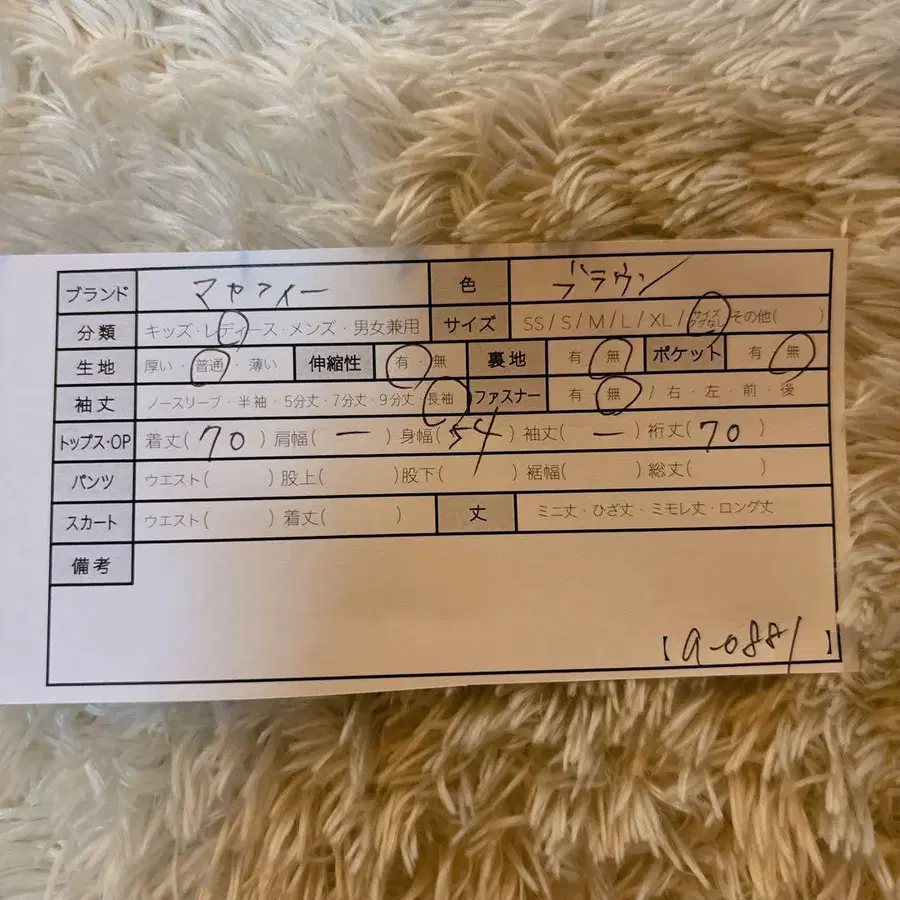 ブランド マヤフィー 色 ブラウン
分類 キッズ・レディース・メンズ・男女兼用 サイズ SS / S / M / L / XL / サイズタグなし その他( )
生地 厚い・普通・薄い 伸縮性 有・無 裏地 有・無 ポケット 有・無
袖丈 ノースリーブ・半袖・5分丈・7分丈・9分丈・長袖 ファスナー 有・無 / 右・左・前・後
トップス・OP 着丈(70) 肩幅(ー) 身幅(54) 袖丈(ー) 裄丈(70)
パンツ ウエスト( ) 股上( ) 股下( ) 裾幅( ) 総丈( )
スカート ウエスト( ) 着丈( ) 丈 ミニ丈・ひざ丈・ミモレ丈・ロング丈
備考
【a-0881】